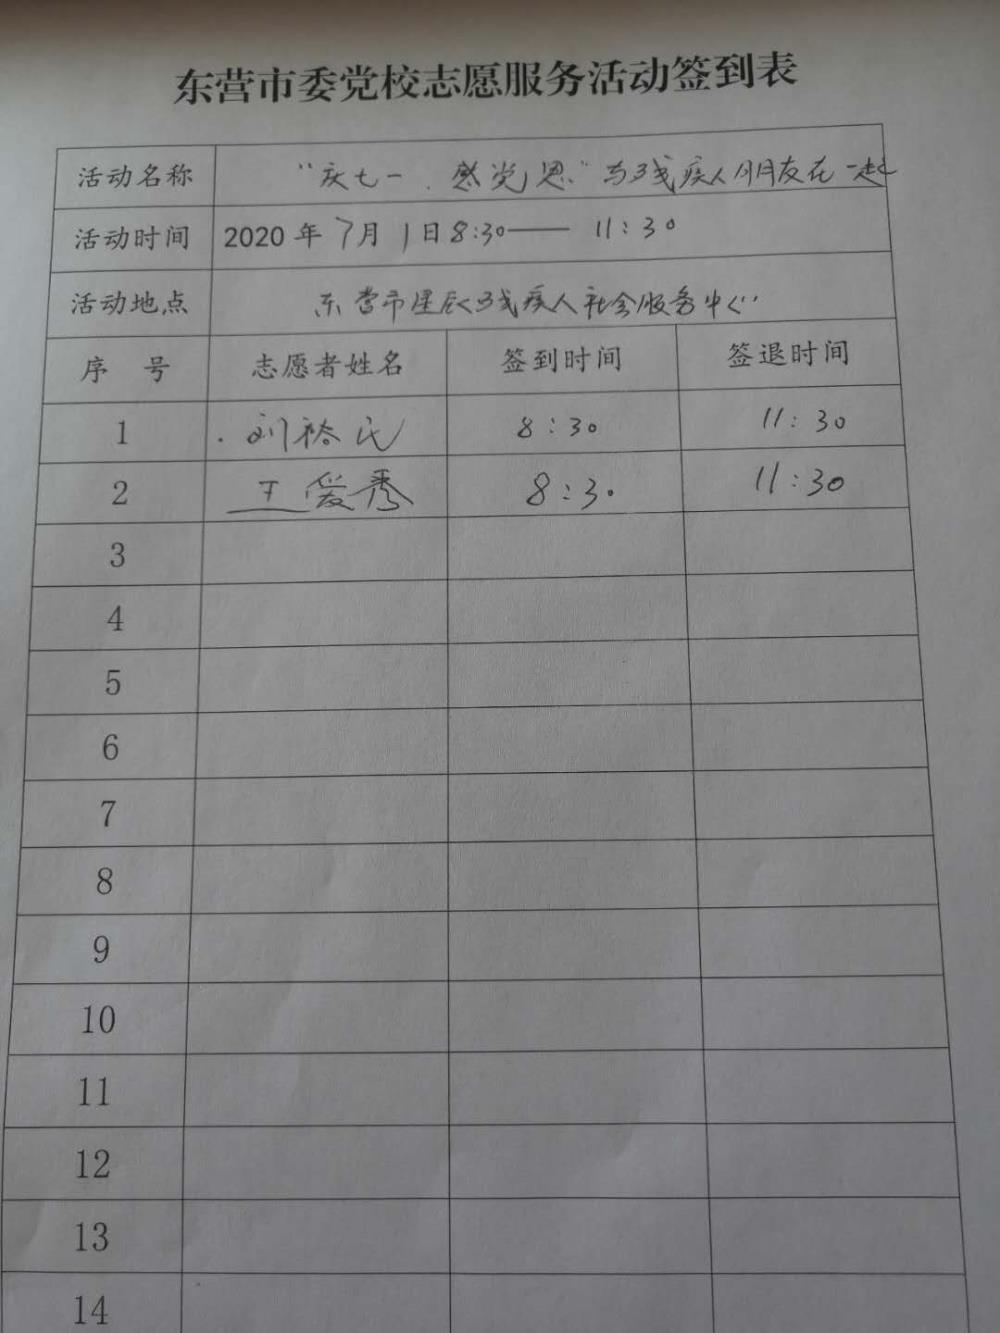 东营市委党校志愿服务活动签到表
活动名称 “庆七一、感党恩”与残疾人朋友在一起
活动时间 2020年7月1日8:30—— 11:30
活动地点 东营市星辰残疾人社会服务中心
序 号 志愿者姓名 签到时间 签退时间
1 刘裕民 8:30 11:30
2 王爱秀 8:30 11:30
3
4
5
6
7
8
9
10
11
12
13
14